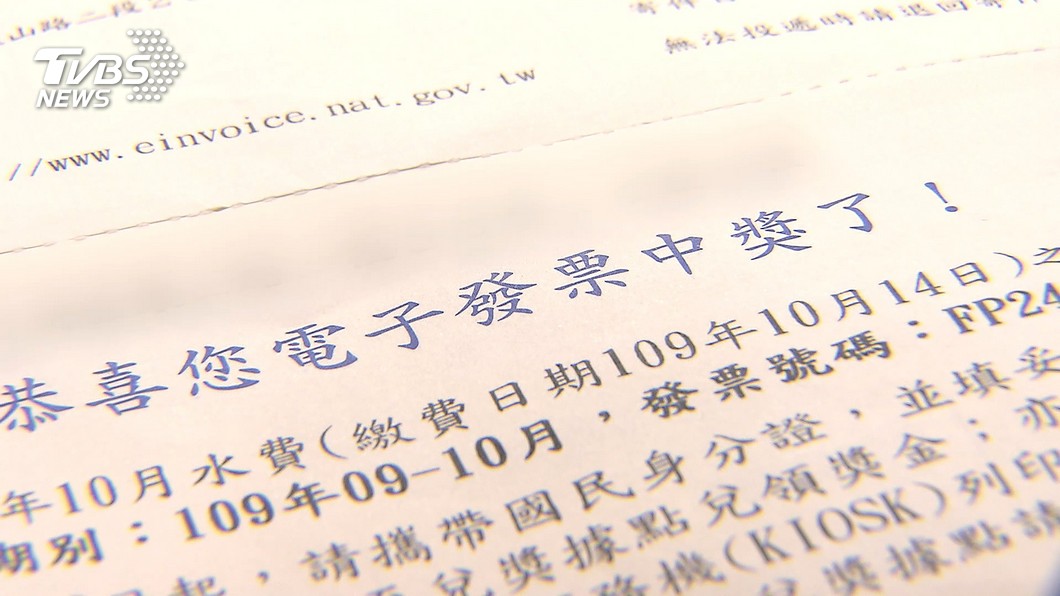 山路二段
無法投遞時請退回寄件
TVBS
NEWS
//www.einvoice.nat.gov.tw
恭喜您電子發票中獎了！
年10月水費(繳費日期109年10月14日)之
期別：109年09-10月，發票號碼：FP24
起，請攜帶國民身分證，並填妥
兌獎據點兌領獎金；亦
務機(KIOSK)列印
兌獎據點請